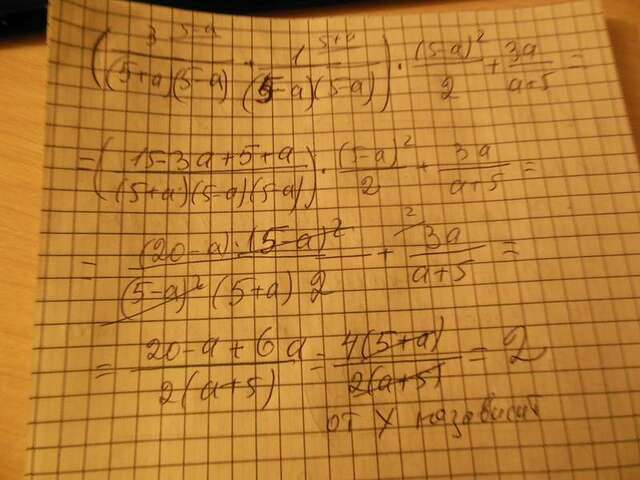 3 5-a 1 5+a
(3/((5+a)(5-a)) + 1/((5-a)(5-a))) · (5-a)²/2 + 3a/(a+5) =
= ((15-3a+5+a)/((5+a)(5-a)(5-a))) · (5-a)²/2 + 3a/(a+5) =
= ((20-a)·(5-a)²)/((5-a)²(5+a)2) + 3a/(a+5) =
= (20-a+6a)/(2(a+5)) = 4(5+a)/(2(a+5)) = 2
от х независит